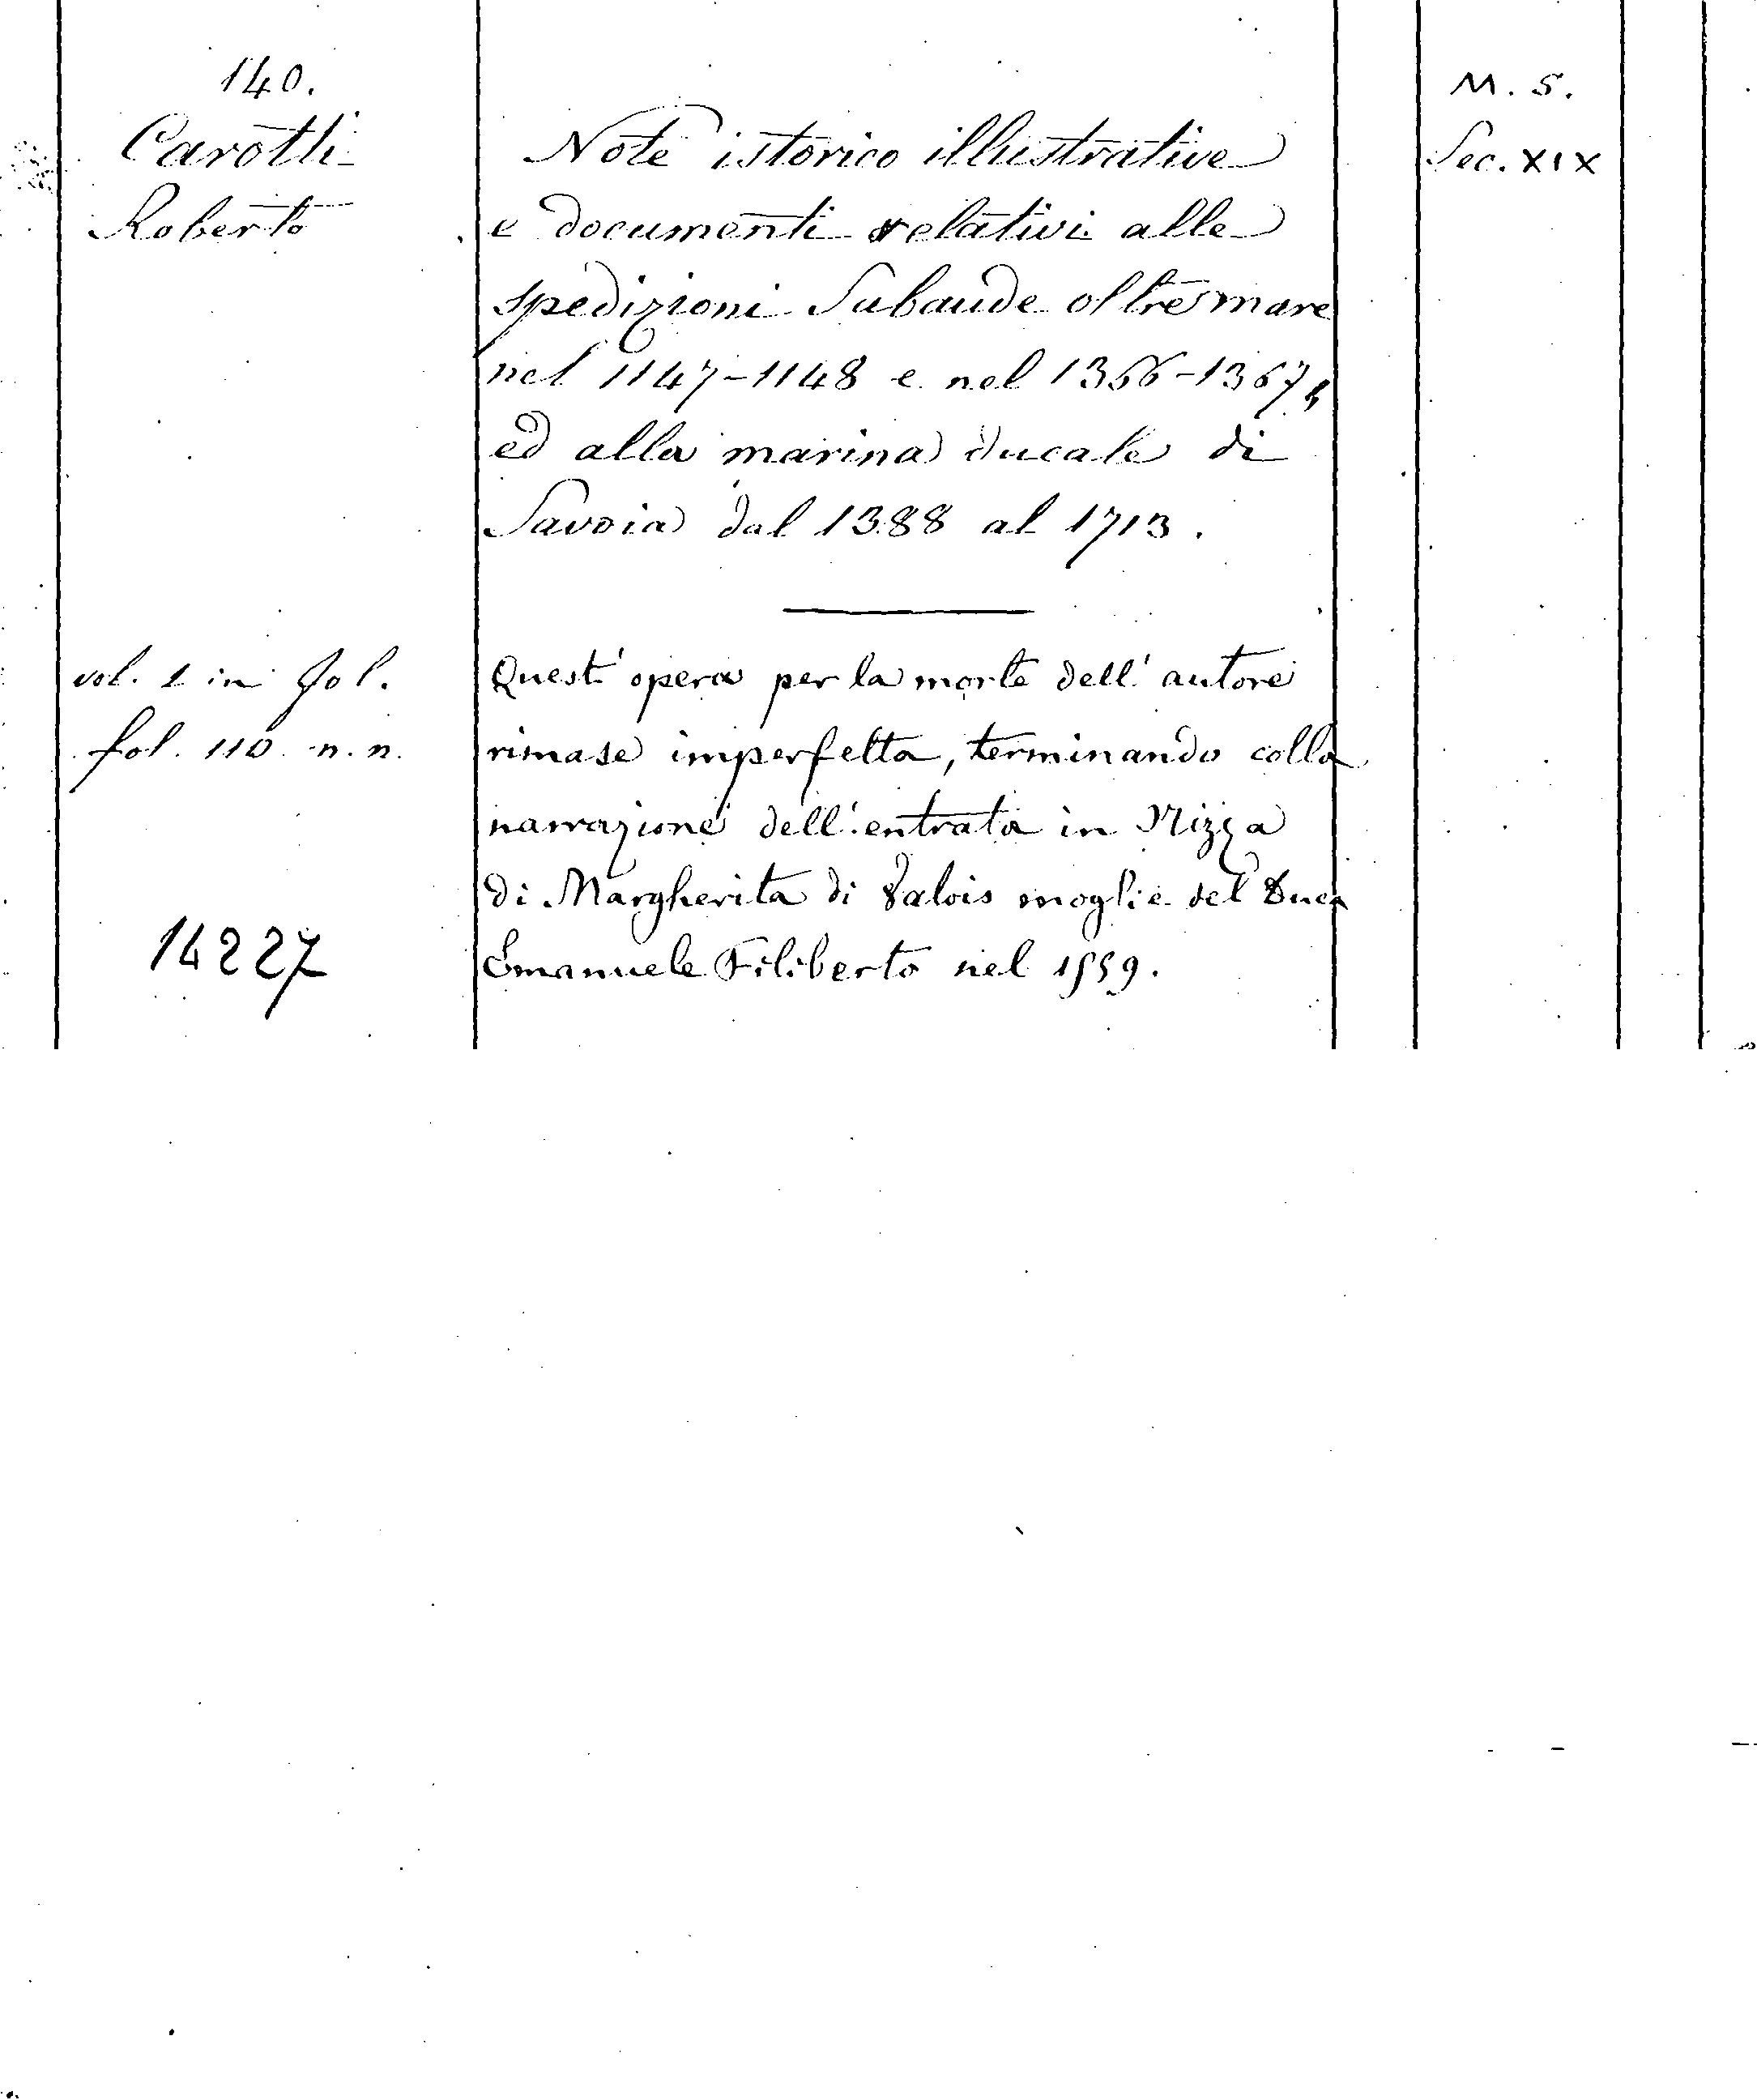 140.
Carotti
Roberto
Note istorico illustrative
e documenti relativi alle
spedizioni Sabaude oltremare
nel 1147-1148 e nel 1366-1367,
ed alla marina ducale di
Savoia dal 1388 al 1713.
M. S.
Sec. XIX
vol. 1 in fol.
fol. 110 n. n.
14227
Quest'opera per la morte dell'autore
rimase imperfetta, terminando colla
narrazione dell'entrata in Nizza
di Margherita di Valois moglie del Duca
Emanuele Filiberto nel 1559.